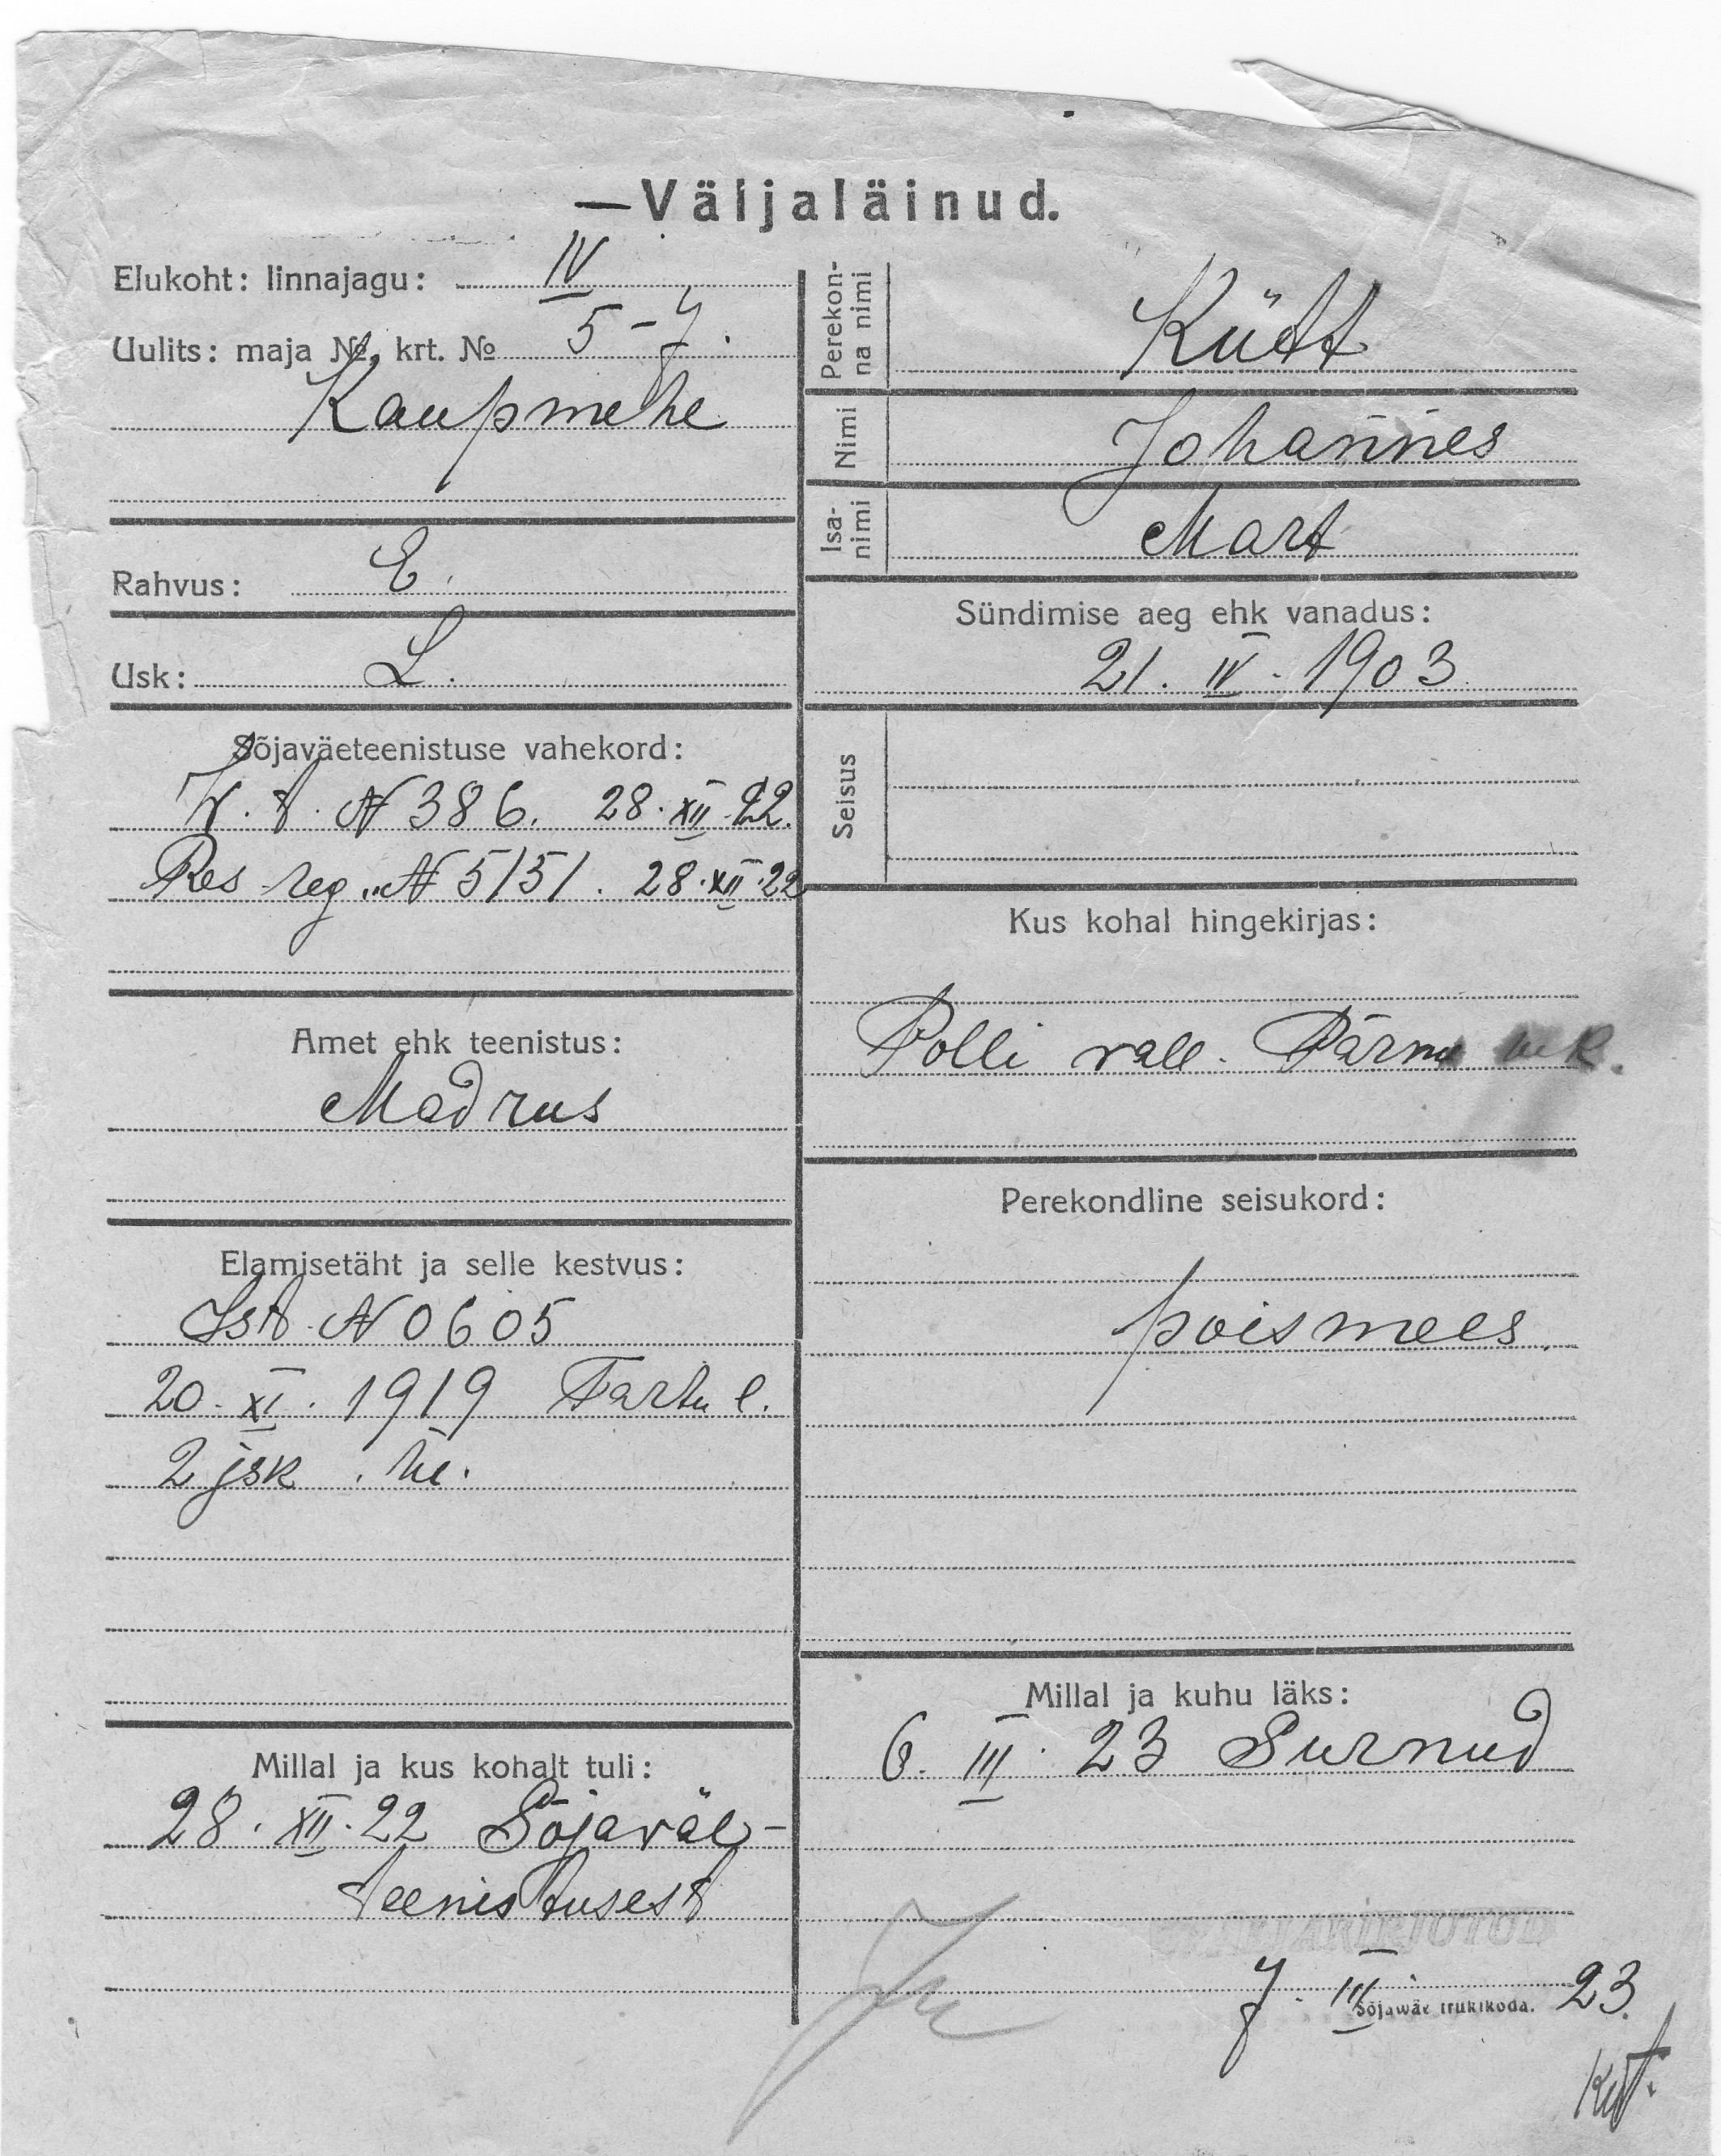 —Väljaläinud.
Elukoht: linnajagu: IV
Uulits: maja №, krt. № 5-7.
Kaupmehe
Rahvus: E.
Usk: L.
Sõjaväeteenistuse vahekord:
W. t. N 386. 28. XII 22.
Res reg. N 5151. 28. XII. 22
Amet ehk teenistus:
Madrus
Elamisetäht ja selle kestvus:
Ist. N 0605
20. XI. 1919 Tartu l.
2 jsk.
Millal ja kus kohalt tuli:
28. XII. 22 Sõjaväe-
teenistusest
Perekon-
na nimi
Kütt
Nimi
Johannes
Isa-
nimi
Mart
Sündimise aeg ehk vanadus:
21. IV. 1903
Seisus
Kus kohal hingekirjas:
Polli vall. Pärnu mk.
Perekondline seisukord:
poismees
Millal ja kuhu läks:
6. III. 23 Surnud
VÄLJAKIRJUTUD
7. III. 23.
Sõjawäe trükikoda.